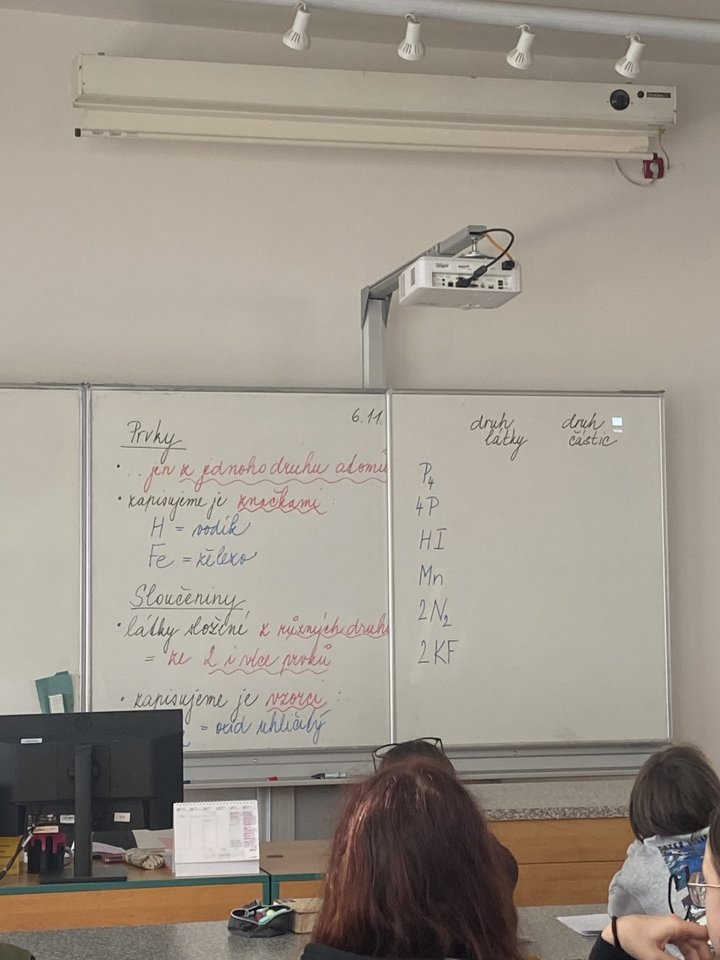 6.11.
Prvky
• .. jen z jednoho druhu atomů
• zapisujeme je značkami :
H = vodík
Fe = železo
Sloučeniny
• látky složené z různých druhů
= ze 2 i více prvků
• zapisujeme je vzorci :
= oxid uhličitý
druh látky
druh částic
P₄
4P
HI
Mn
2N₂
2KF